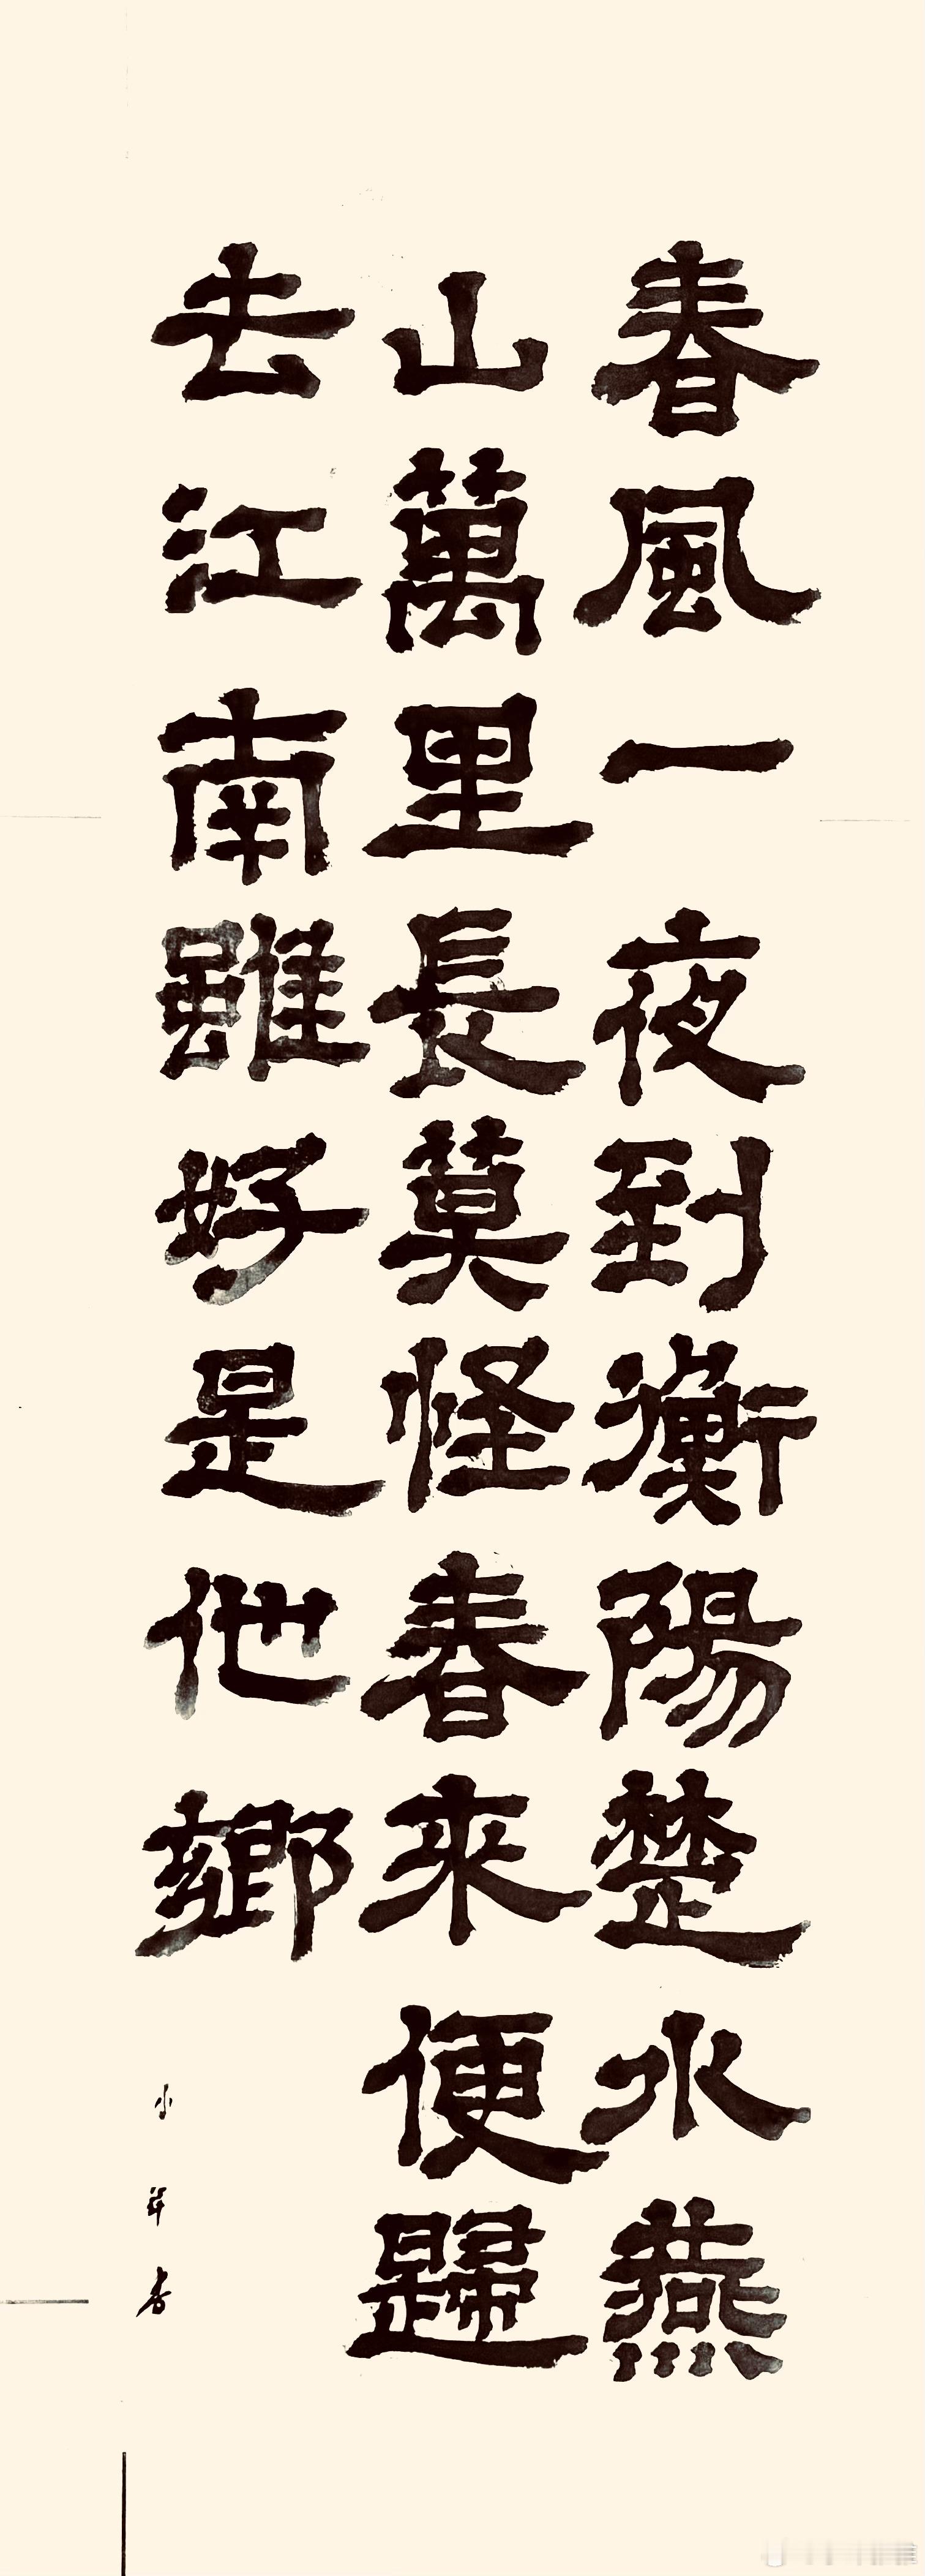 春風一夜到衡陽楚水燕
山萬里長莫怪春來便歸
去江南雖好是他鄉